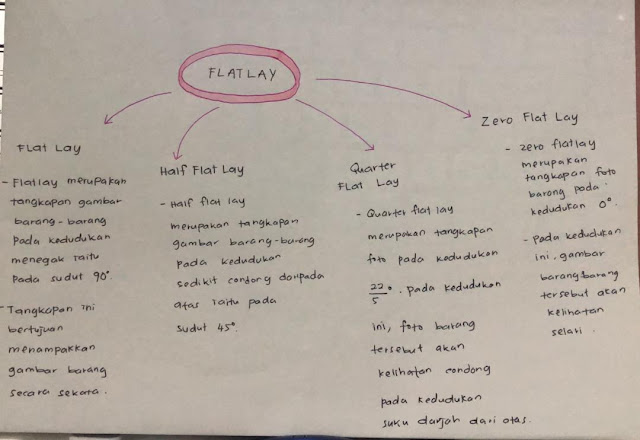 FLATLAY
Flat Lay
- Flatlay merupakan
tangkapan gambar
barang-barang
pada kedudukan
menegak iaitu
pada sudut 90°.
- Tangkapan ini
bertujuan
menampakkan
gambar barang
secara sekata.
Half Flat Lay
- Half flat lay
merupakan tangkapan
gambar barang-barang
pada kedudukan
sedikit condong daripada
atas iaitu pada
sudut 45°.
Quarter
Flat Lay
- Quarter flat lay
merupakan tangkapan
foto pada kedudukan
22/5°. pada kedudukan
ini, foto barang
tersebut akan
kelihatan condong
pada kedudukan
suku darjah dari atas.
Zero Flat Lay
- zero flatlay
merupakan
tangkapan foto
barang pada
kedudukan 0°.
- pada kedudukan
ini, gambar
barang-barang
tersebut akan
kelihatan
selari.